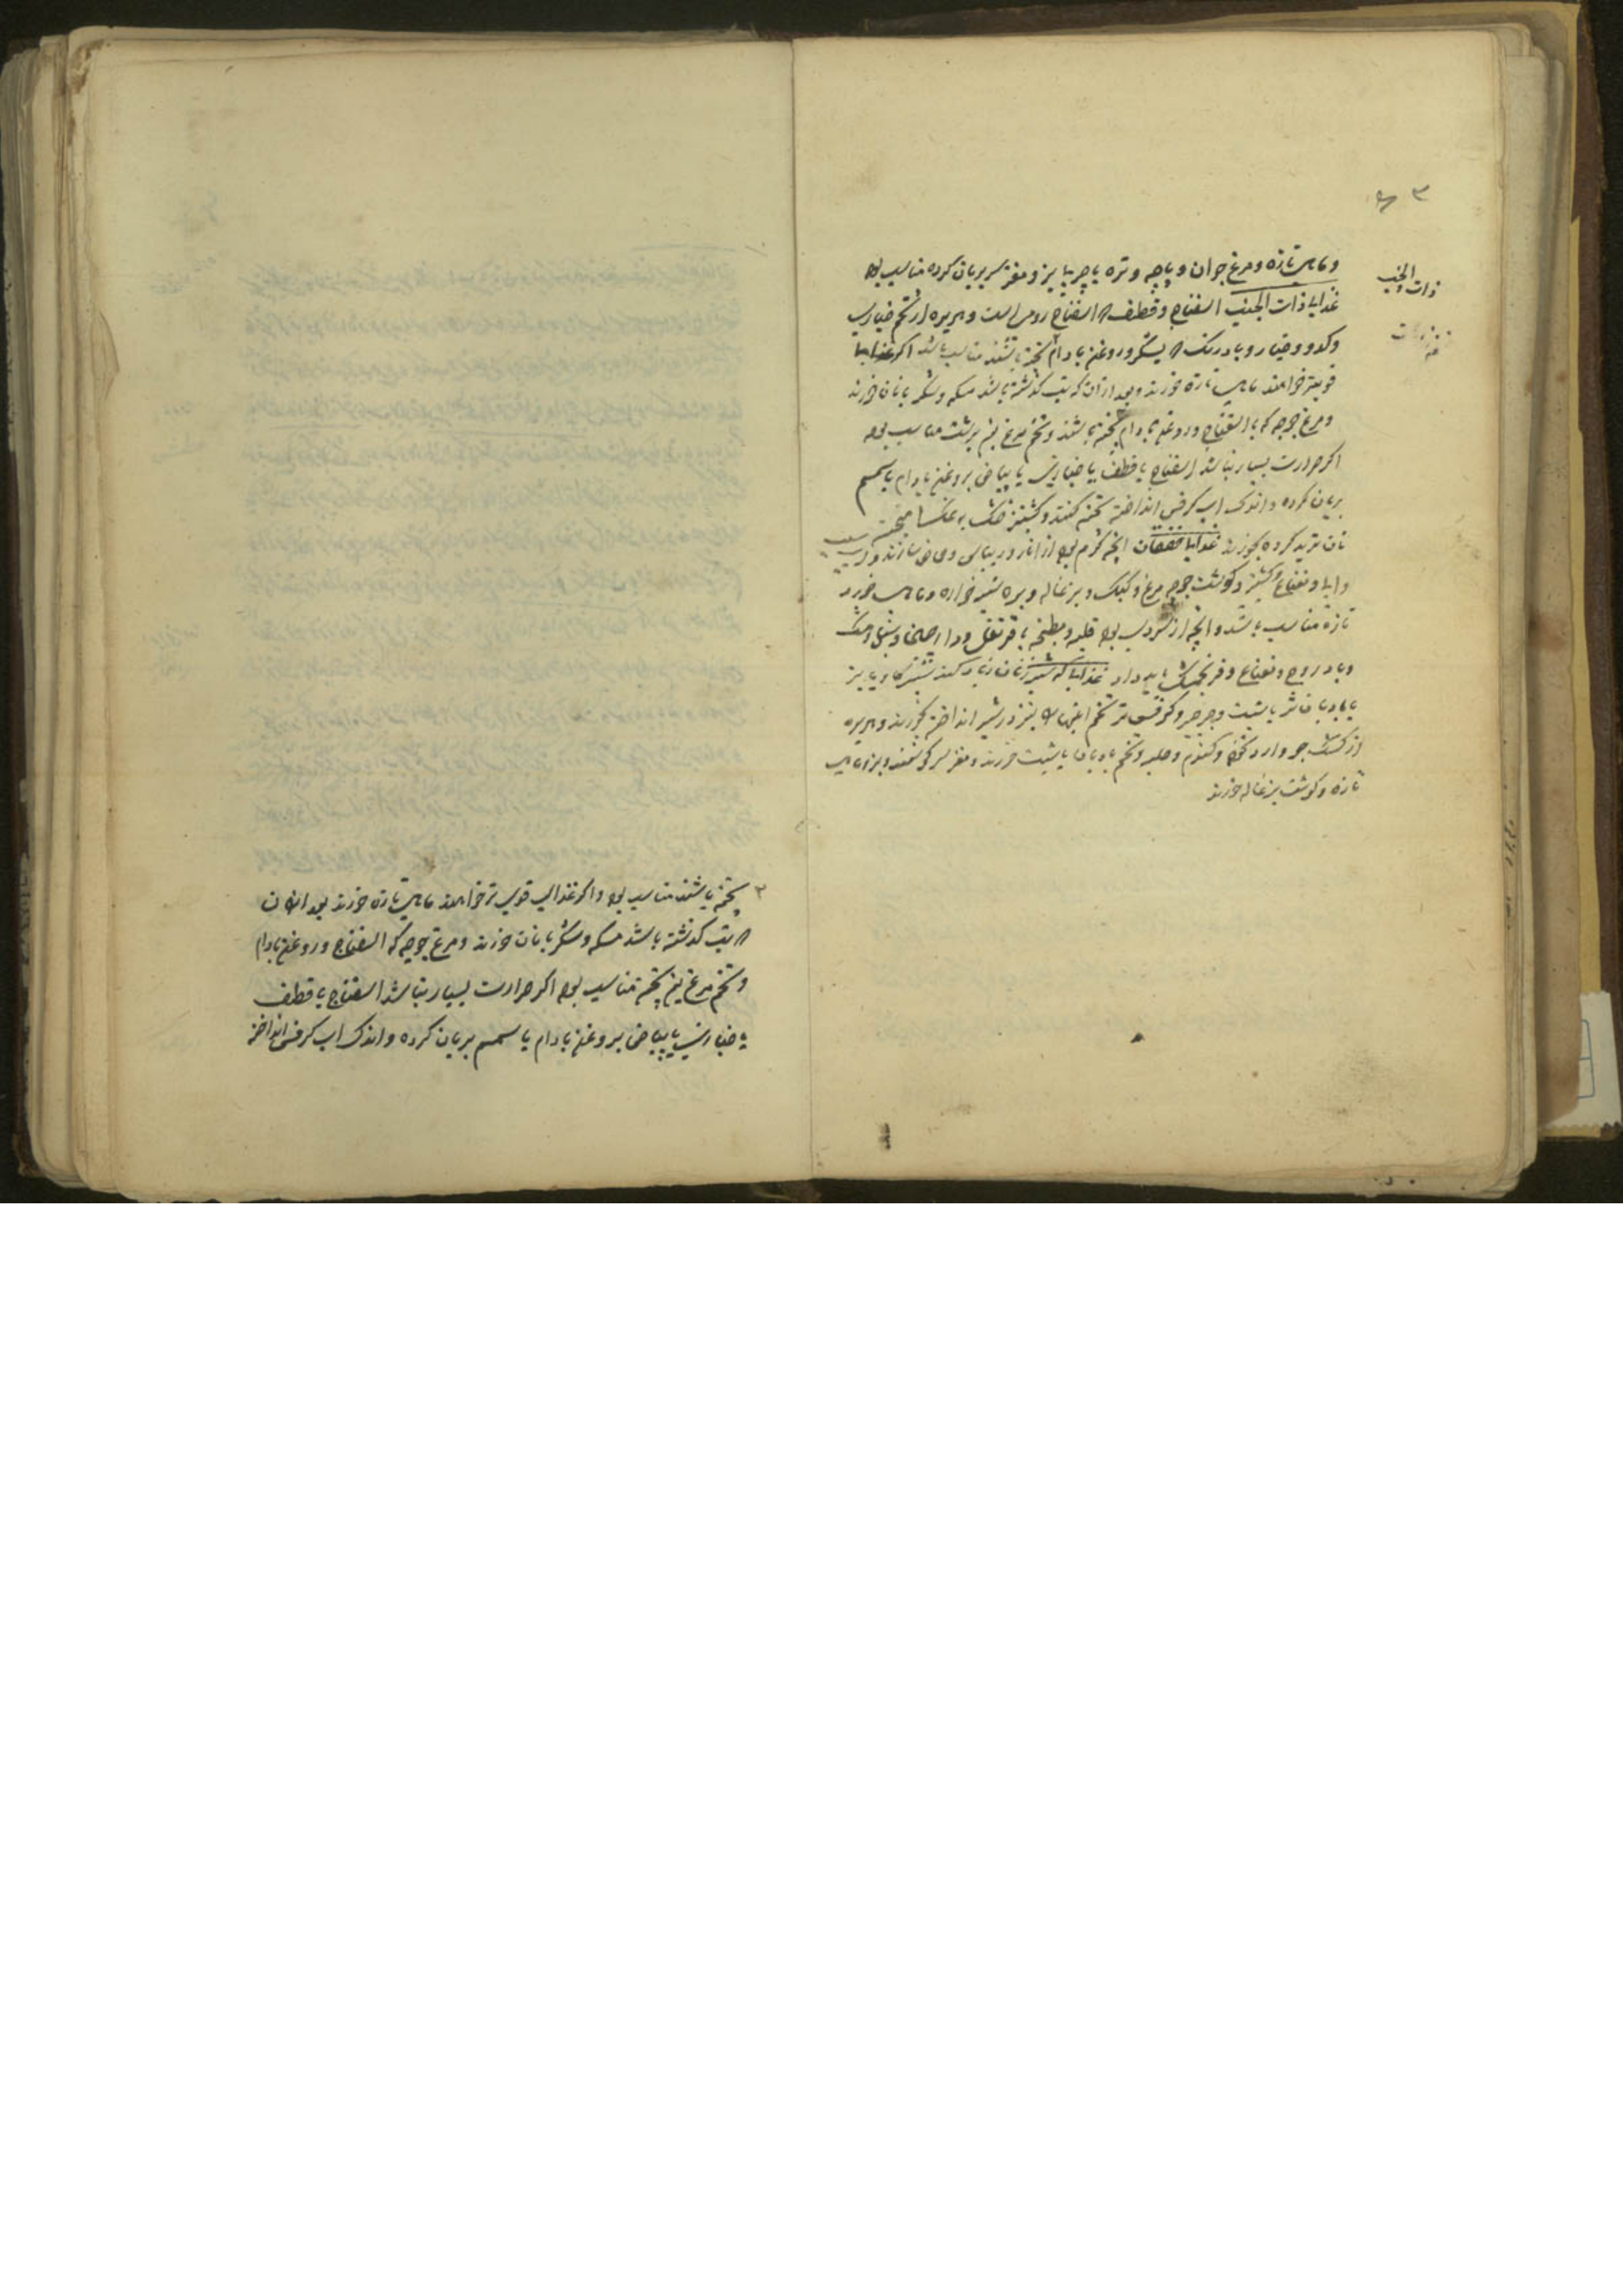 ذات الجنب
وماهی تازه ومرغ جوان وپاچه وتره یا چربا پز ومغز سر بریان کرده مناسب بود
غذایا ذات الجنب اسفناج وقطف که اسفناخ رومی است وهریره از تخم خیارین
وکدو وخیار وبادرنک که بشکر وروغن بادام پخته باشند مناسب باشد اکر غذایها
قویتر خواهند ماهی تازه خورند وبعد از آن که تب کذشته باشد مسکه وشکر با نان خورند
ومرغ جوجه که با اسفناج وروغن بادام پخته باشند وتخم مرغ نیم برشت مناسب بود
اکر حرارت بسیار نباشد اسفناج یا قطف یا خیارین یا بیاض بروغن بادام یا سمسم
بریان کرده واندک آب کرفس انداخته پخته کنند وکشنیز خشک
نان ترید کرده بخورند غذایا خفقان انچه کرم بود از انار وریباس وحماض سازند
ونعناع وکشنیز وکوشت جوجه مرغ وکبک وبزغاله وبره شیر خواره وماهی خورد
تازه مناسب باشد وانچه از سردی بود قلیه ومطبخه با قرنفل ودارچینی وسنبل ومشک
وبادروج ونعناع وفرنجمشک باید داد غذایا که شیر زنان زیاد کند شیر کاو یا بز
با بادیان تر یا شبت وجرجیر وکرفس تر تخم اینها که نیز در شیر انداخته بخورند وهریره
از کشک جو وارد نخود وکندم وحلبه وتخم بادیان یا شبت خورند ومغز سر کوسفند وبز وماهی
تازه وکوشت بزغاله خورند
پخته باشند مناسب بود واکر غذای قوی تر خواهند ماهی تازه خورند بعد از آن
که تب کذشته باشد مسکه وشکر با نان خورند ومرغ جوجه که اسفناج وروغن بادام
وتخم مرغ نیم پخته مناسب بود اکر حرارت بسیار نباشد اسفناج یا قطف
یا خیارین یا بیاض بروغن بادام یا سمسم بریان کرده واندک آب کرفس انداخته